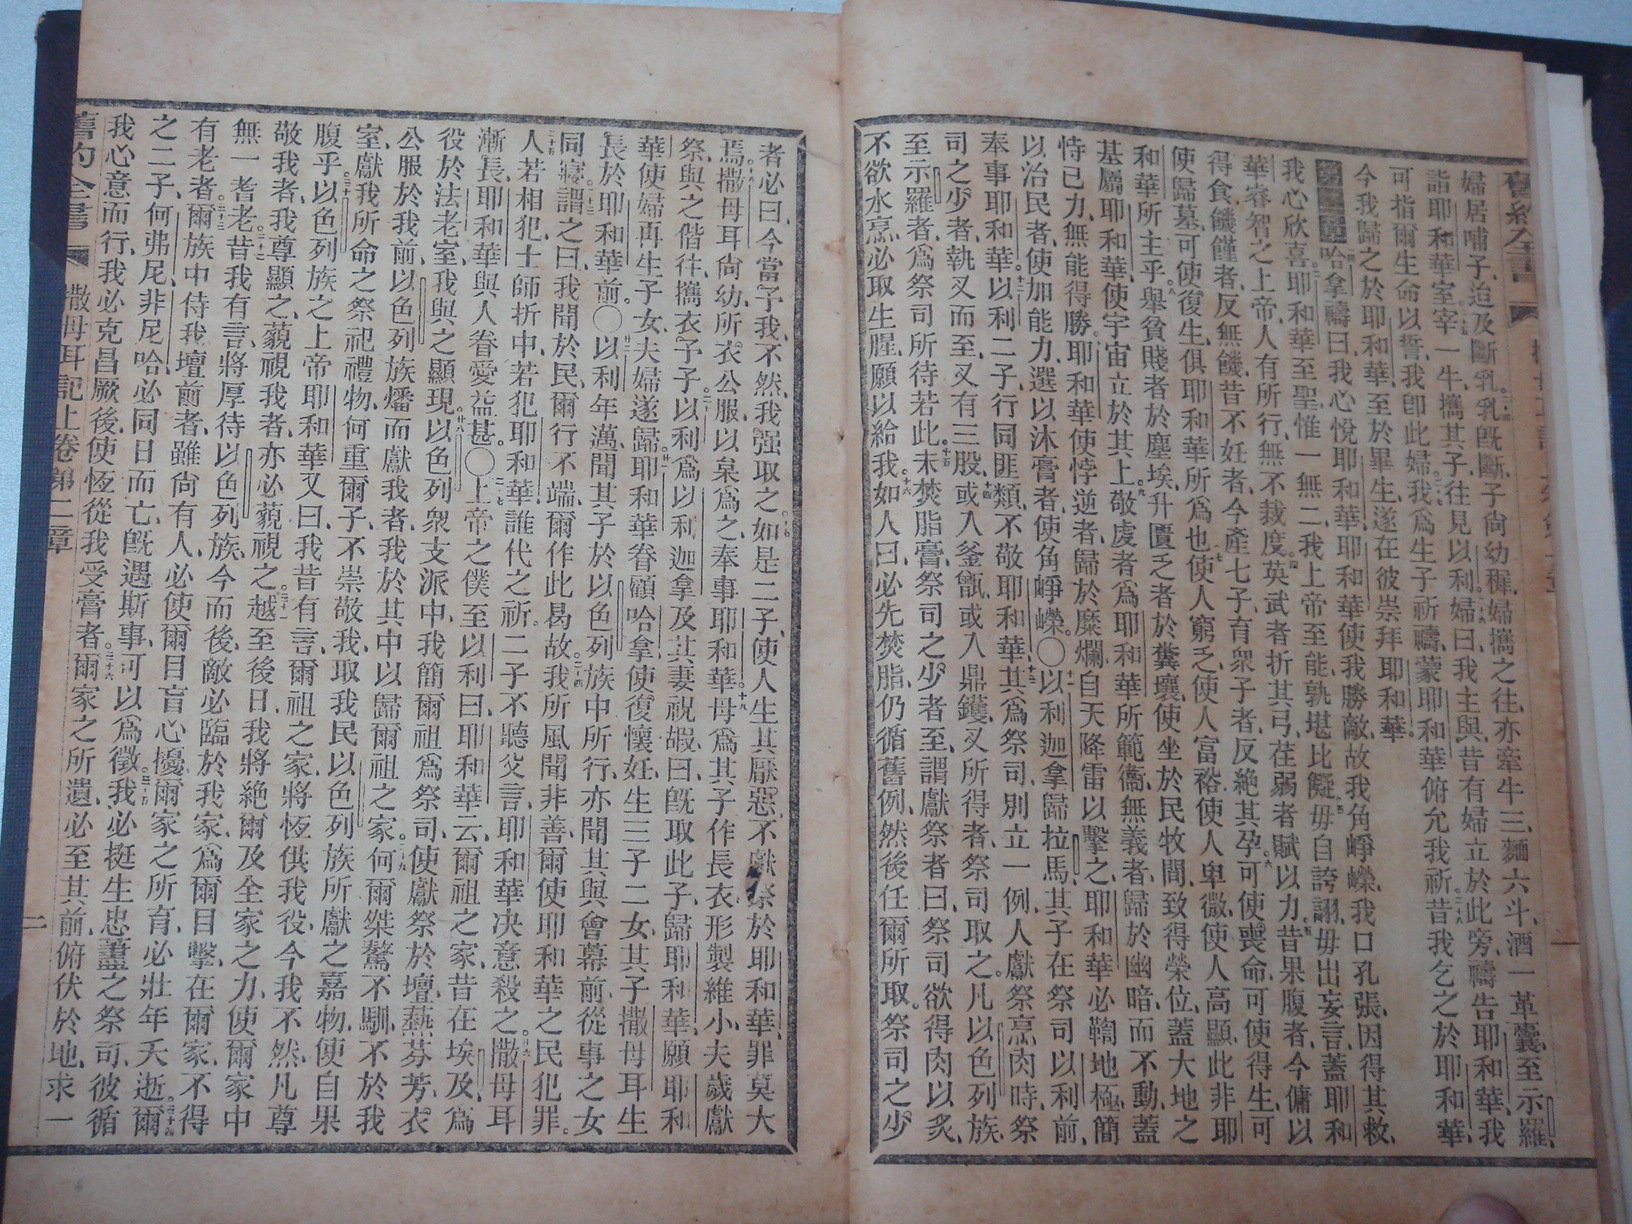 婦居哺子、迨及斷乳、乳旣斷、子尙幼穉、婦攜之往、亦牽牛三、麵六斗、酒一革囊、至示羅、
詣耶和華室、宰一牛、攜其子、往見以利、婦曰、我主與、昔有婦立於此旁、禱告耶和華、我
可指爾生命以誓、我卽此婦、我爲生子祈禱、蒙耶和華俯允我祈、昔我乞之於耶和華、
今我歸之於耶和華、至於畢生、遂在彼崇拜耶和華。
第二章 哈拿禱曰、我心悅耶和華、耶和華使我勝敵、故我角崢嶸、我口孔張、因得其救、
我心欣喜、耶和華至聖、惟一無二、我上帝至能、孰堪比儗、毋自誇詡、毋出妄言、蓋耶和
華睿智之上帝、人有所行、無不裁度、英武者折其弓、荏弱者賦以力、昔果腹者、今傭以
得食、饑饉者、反無饑、昔不妊者、今產七子、育衆子者、反絕其孕、可使喪命、可使得生、可
使歸墓、可使復生、俱耶和華所爲也、使人窮乏、使人富裕、使人卑微、使人高顯、此非耶
和華所主乎、舉貧賤者於塵埃、升匱乏者於糞壤、使坐於民牧間、致得榮位、蓋大地之
基屬耶和華、使宇宙立於其上、敬虔者爲耶和華所範衞、無義者歸於幽暗而不動、蓋
恃已力、無能得勝、耶和華使悖逆者、歸於糜爛、自天降雷以擊之、耶和華必鞫地極、簡
以治民者、使加能力、選以沐膏者、使角崢嶸。〇以利迦拿歸拉馬、其子在祭司以利前、
奉事耶和華。以利二子、行同匪類、不敬耶和華、其爲祭司、別立一例、人獻祭烹肉時、祭
司之少者、執叉而至、叉有三股、或入釜甑、或入鼎鑊、叉所得者、祭司取之、凡以色列族、
至示羅者、爲祭司所待若此、未焚脂膏、祭司之少者至、謂獻祭者曰、祭司欲得肉以炙、
不欲水烹、必取生腥、願以給我、如人曰、必先焚脂、仍循舊例、然後任爾所取。祭司之少
者必曰、今當予我、不然、我强取之、如是二子、使人生其厭惡、不獻祭於耶和華、罪莫大
焉。撒母耳尙幼、所衣公服、以枲爲之、奉事耶和華。母爲其子作長衣、形製維小、夫歲獻
祭、與之偕往、攜衣予子、以利爲以利迦拿及其妻祝嘏、曰、旣取此子、歸耶和華、願耶和
華使婦再生子女、夫婦遂歸、耶和華眷顧哈拿、使復懷妊、生三子二女、其子撒母耳生
長於耶和華前。〇以利年邁、聞其子於以色列族中所行、亦聞其與會幕前從事之女
同寢、謂之曰、我聞於民、爾行不端、爾作此曷故、我所風聞非善、爾使耶和華之民犯罪。
人若相犯、士師折中、若犯耶和華、誰代之祈。二子不聽父言、耶和華決意殺之。撒母耳
漸長、耶和華與人眷愛益甚。〇上帝之僕至以利曰、耶和華云、爾祖之家、昔在埃及、爲
役於法老室、我與之顯現、以色列衆支派中、我簡爾祖爲祭司、使獻祭於壇、爇芬芳、衣
公服於我前、以色列族燔而獻我者、我於其中以歸爾祖之家、何爾桀驁不馴、不於我
室、獻我所命之祭祀禮物、何重爾子、不崇敬我、取我民以色列族所獻之嘉物、使自果
腹乎、以色列族之上帝耶和華又曰、我昔有言、爾祖之家、將恆供我役、今我不然、凡尊
敬我者、我尊顯之、藐視我者、亦必藐視之、越至後日、我將絕爾及全家之力、使爾家中
無一耆老、昔我有言、將厚待以色列族、今而後、敵必臨於我家、爲爾目擊、在爾家、不得
有老者、爾族中侍我壇前者、雖尙有人、必使爾目盲心擾、爾家之所育、必壯年夭逝、爾
之二子、何弗尼、非尼哈、必同日而亡、旣遇斯事、可以爲徵、我必挺生忠藎之祭司、彼循
我心意而行、我必克昌厥後、使恆從我受膏者、爾家之所遺、必至其前、俯伏於地、求一
舊約全書 撒母耳記上卷 第二章 二